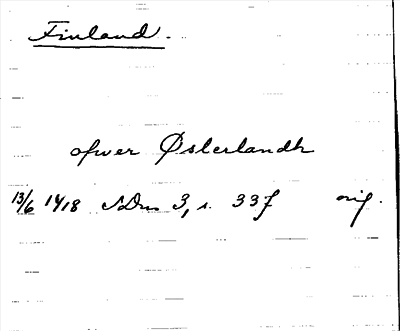 Finland.
ofwer Østerlandh
13/6 1418 SDns 3, s. 337 orig.